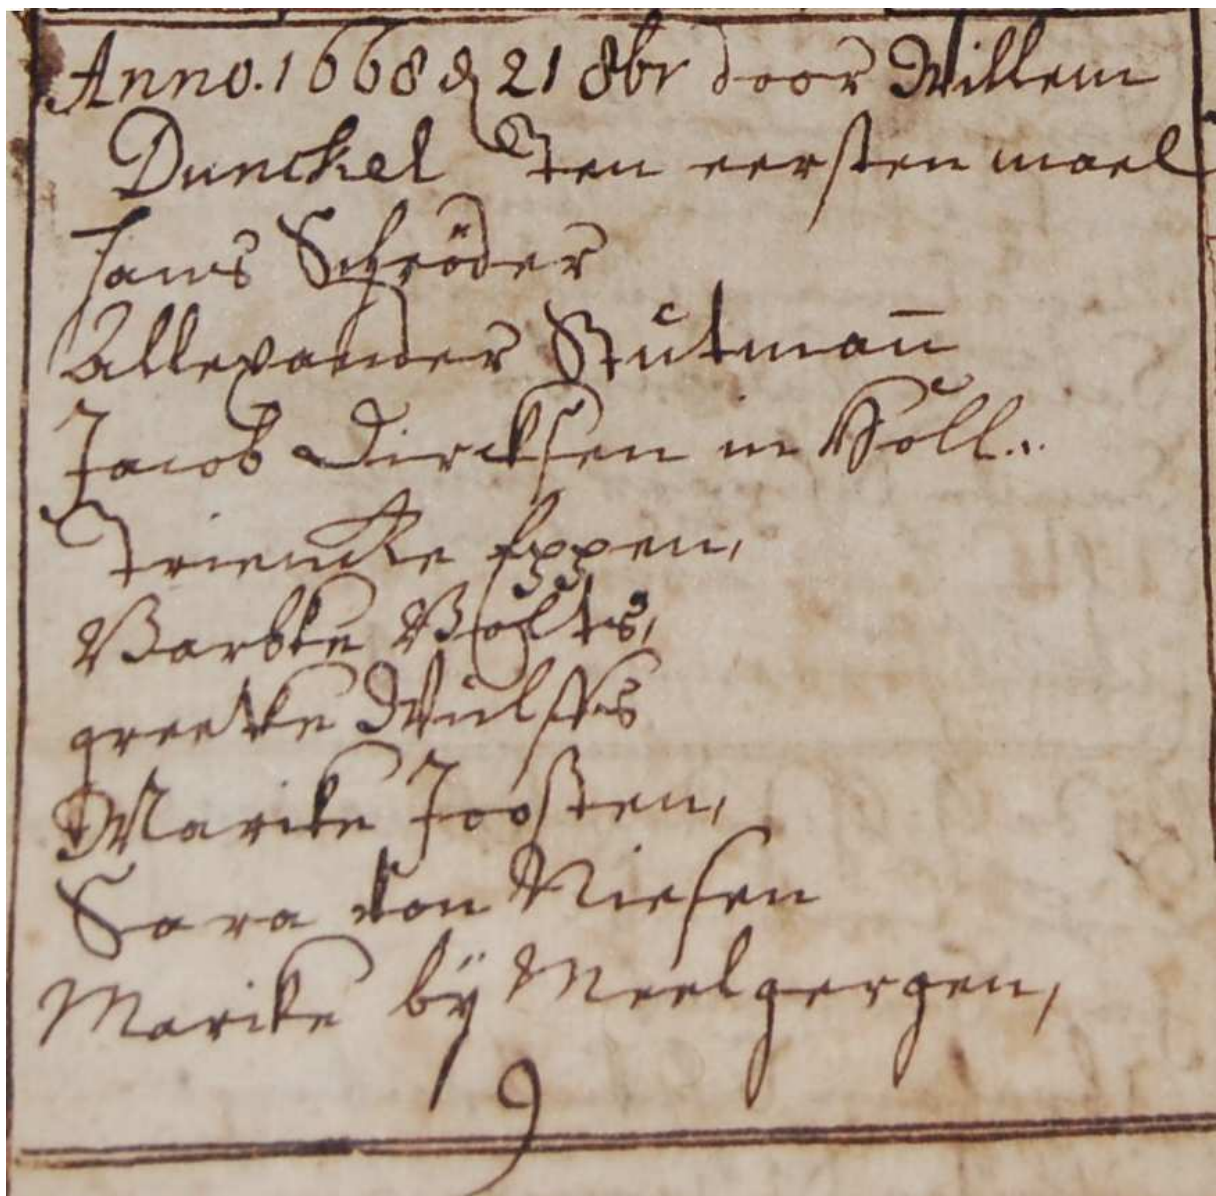 Anno. 1668 d 21 8br door Willem
Dunckel Ten eersten mael
Hans Schröder
Allexander Stutman̄
Jacob Dircksen in Holl..
Triencke Eppen,
Barbke Boltes,
greetke Wulffes
Marike Joosten,
Sara von Niesen
Marike bÿ Meelgergen,
9